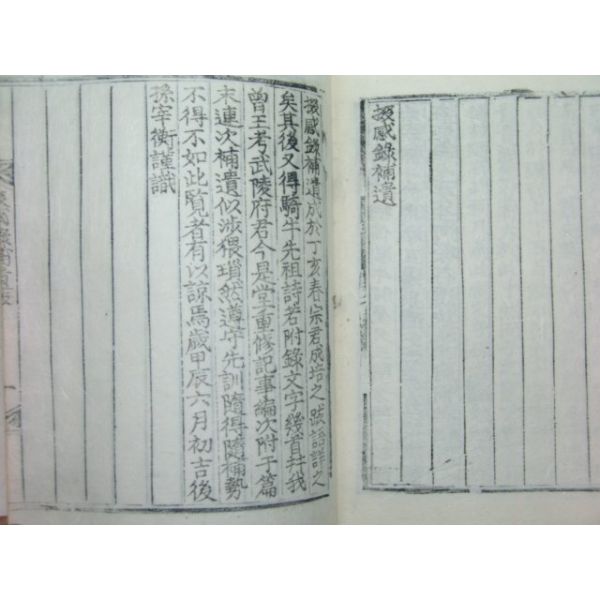 掇感錄補遺
掇感錄補遺成於丁亥春宗君成培之跋語詳之
矣其後又得騎牛先祖詩若附錄文字幾首幷我
曾王考武陵府君今是堂重修記事編次附于篇
末連次補遺似涉猥瑣然遵守先訓隨得隨補勢
不得不如此覽者有以諒焉歲甲辰六月初吉後
孫宰衡謹識